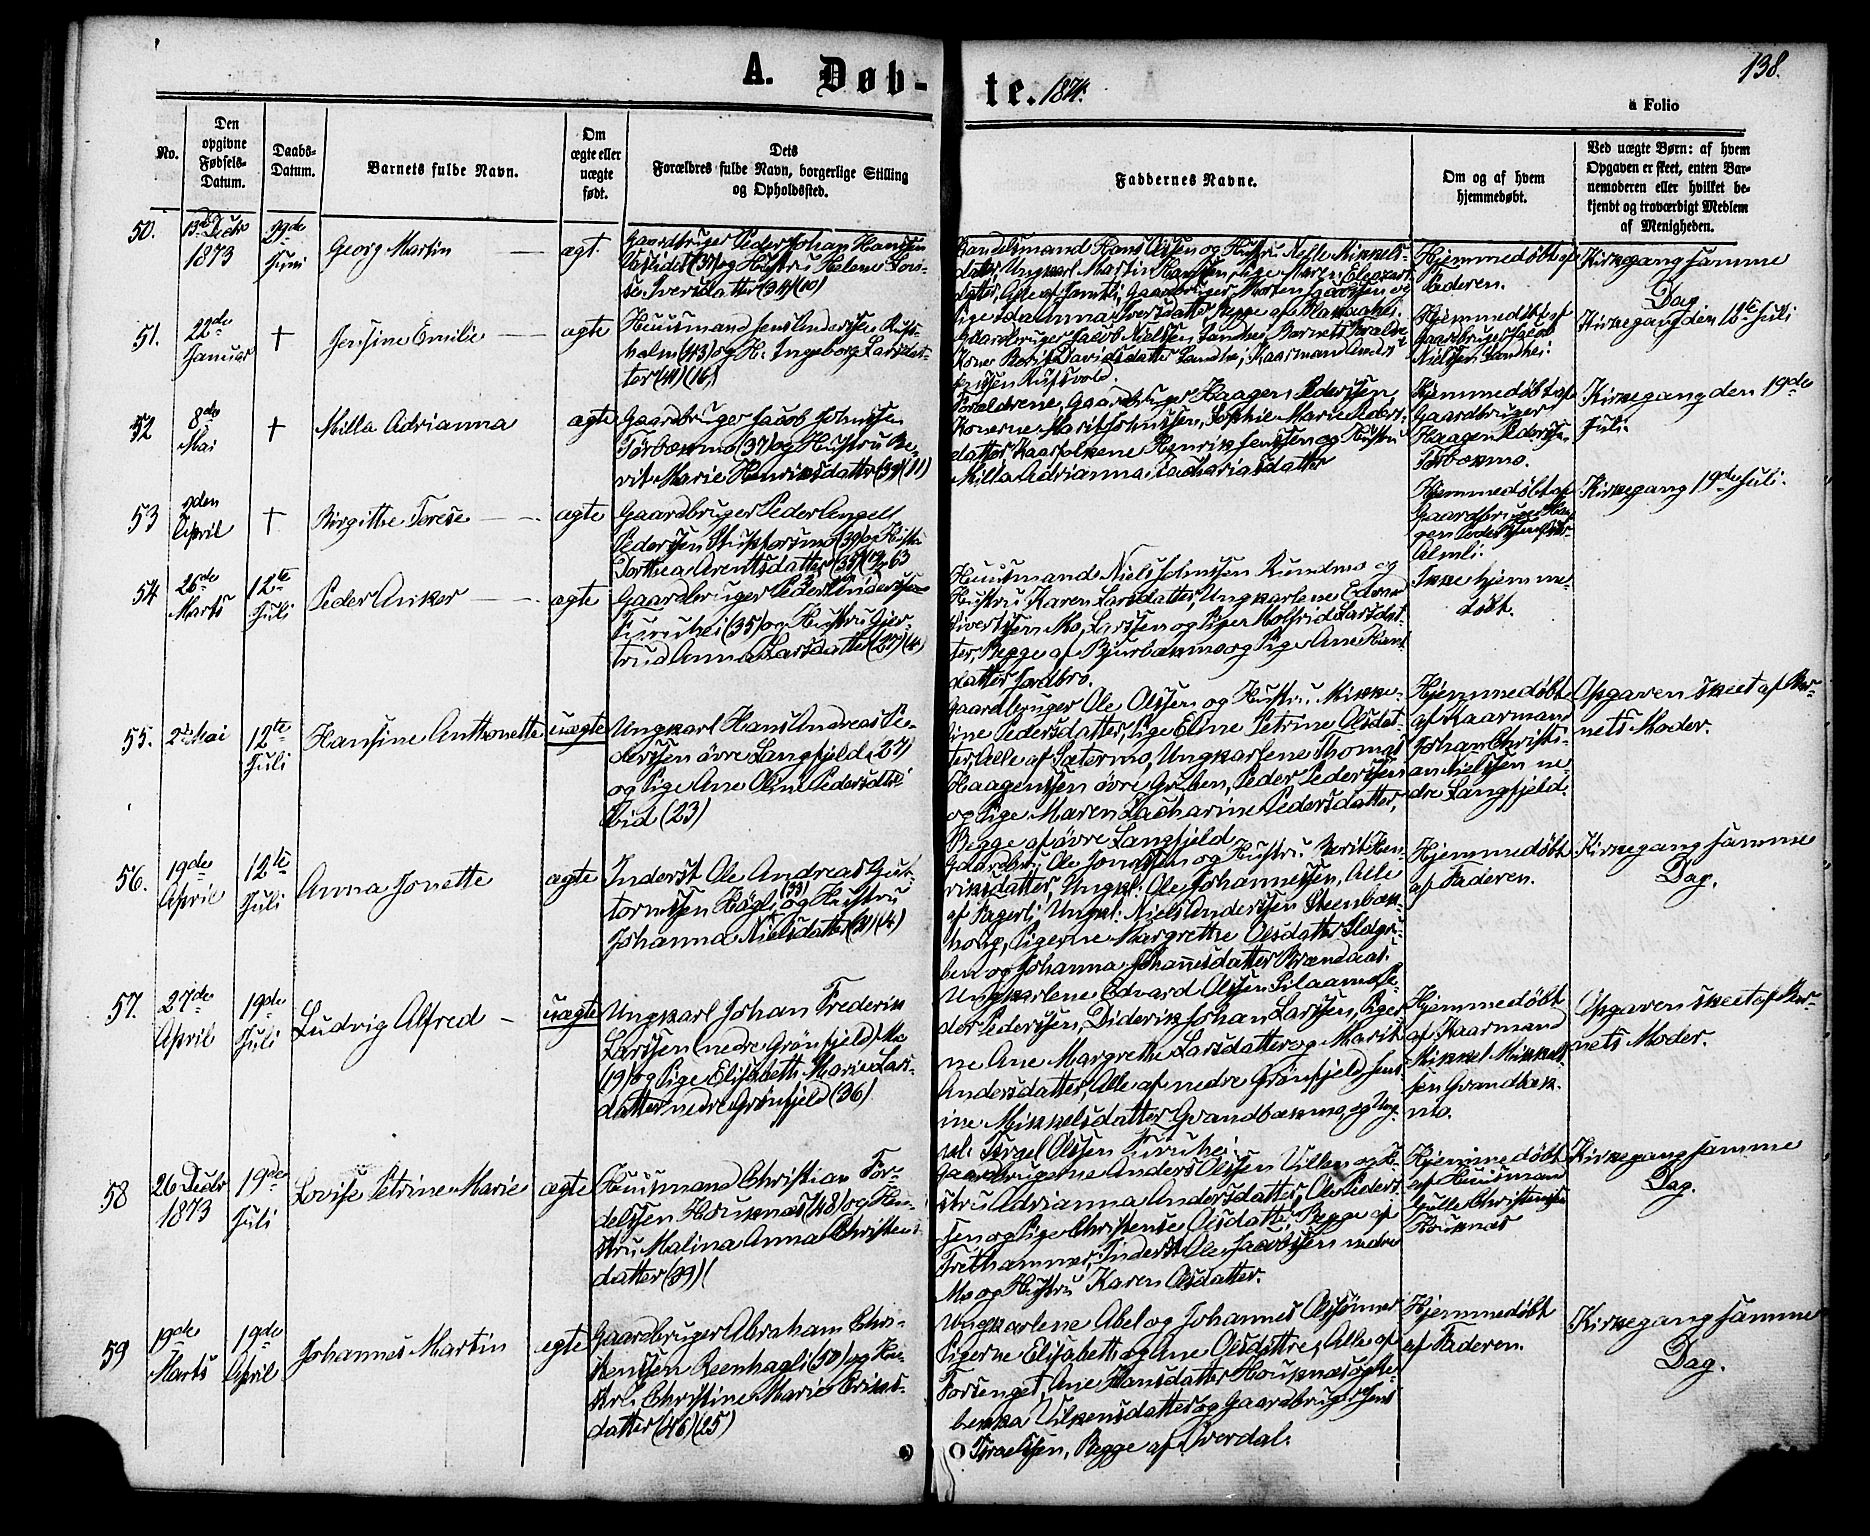 138.
A. Døb-
te. 1874.
a Folio
No.
Den
opgivne
Fødsels-
Datum.
Daabs-
Datum.
Barnets fulde Navn.
Om
ægte eller
uægte
født.
Dets
Forældres fulde Navn, borgerlige Stilling
og Opholdssted.
Faddernes Navne.
Om og af hvem
hjemmedøbt.
Ved uægte Børn: af hvem
Opgaven er skeet, enten Bar-
nemoderen eller hvilket be-
kjendt og troværdigt Medlem
af Menigheden.
50.
13de Decbr
1873
Juni
Georg Martin
ægt.
Gaardbruger Peder Johan Hansen
(37) og Hustru Helene Lovi-
se Iversdatter (34) (10)
Baandsmand Hans Olssen og Hustru
Ungkarl Martin Hanssen, Pige Maren
datter, Alle af Gaardbruger Morten og
Pige Anna Iversdatter, Begge af
Hjemmedøbt af
Faderen.
Kirkegang samme
Dag.
51.
22de
Januar
†
Jensine Emilie
ægte
Huusmand Jens Anderssen Rufs-
holm (43) og H. Ingeborg Larsdat-
ter (41) (16)
Gaardbruger Jacob Nielssen Sandhei, Barnets Forældre
Kone Berit Davidsdatter Sandhei, Kaarmand Anders
Jenssen Rufsvold.
Hjemmedøbt af
Gaardbruger Jacob
Nielssen Sandhei.
Kirkegang den 12te Juli
52
8de
Mai
†
Milla Adrianna
ægte
Gaardbruger Jacob Johnssen
Tørbækmo (37) og Hustru Be-
rit Marie Henriksdatter (39) (11)
Forældrene, Gaardbruger Haagen Pederssen,
Konerne Marit Johnssen, Sophie Marie Peders-
datter, Kaarfolkene Henrik Jenssen og Hustru
Milla Adrianna Zachariasdatter
Hjemmedøbt af
Gaardbruger
Haagen Pederssen
Tørbækmo.
Kirkegang den 19de
Juli.
53
9den
April
†
Birgithe Terese
ægte
Gaardbruger Peder Angell
Pederssen Storforsmo (39) og Hustru
Dorthea Arentsdatter (35) (12)
Hjemmedøbt af
Gaardbruger Haa-
gen
Almli.
Kirkegang 19de Juli.
54
26de
Marts
12te
Juli
Peder Anker
ægte
Gaardbruger Peder Anderssen
Furuhei (35) og Hustru Gjer-
trud Anna Larsdatter (27) (4)
Huusmand Niels Johnssen Rundmo og
Hustru Karen Larsdatter, Ungkarlene Edvard
Sivertssen Mo, Larssen og Pigen Molfrid Larsdat-
ter, Begge af Bjurbækmo og Pige Ane Hans
datter Jordbro.
Ikke hjemme-
døbt.
55.
2den Mai
12te
Juli
Hansine Anthonette
uægte
Ungkarl Hans Andreas Pe-
derssen øvre Langfjeld (27)
og Pige Ane Oline Pedersdtr
ibid (23)
Gaardbruger Ole Olssen og Hustru Mikke-
line Pedersdatter, Pige Elene Petrine Olsdat-
ter, Alle af Sætermo, Ungkarlene Thomas
Haagenssen øvre Gruben, Peder Pederssen
og Pige Maren Zacharine Pedersdatter,
Begge af øvre Langfjeld
Hjemmedøbt
af Kaarmand
Johan Christi-
an Nielssen ne-
dre Langfjeld.
Opgaven skeet af Bar-
nets Moder.
56.
19de
April
12te
Juli
Anna Jonette
ægte
Inderst Ole Andreas Gut-
tormssen Høgli (33) og Hustru
Johanna Nielsdatter (21) (4)
Gaardbr. Ole Jonassen og Hustru Berit Hen-
riksdatter, Ungkl. Ole Johannessen, Alle
af Fagerli, Ungkl. Niels Anderssen Steenbæk-
houg, Pigerne Margrethe Olsdatter
ben og Johanna Johannesdatter Brændaas.
Hjemmedøbt
af Faderen.
Kirkegang samme
Dag.
57.
27de
April
19de
Juli
Ludvig Alfred
uægte
Ungkarl Johan Frederik
Larssen (nedre Grønfjeld) Mo
(19) og Pige Elisabeth Marie Lars-
datter nedre Grønfjeld (26)
Ungkarlene Edvard Olssen Pe-
der Pederssen, Diderik Johan Larssen, Piger-
ne Ane Margrethe Larsdatter og Marit
Andersdatter, Alle af nedre Grønfjeld, Jens-
ine Mikkelsdatter Grandbækmo, og Ung-
kl. Israel Olssen Furuhei.
Hjemmedøbt
af Kaarmand
Mikkel Mikkel-
sen Grandbæk-
mo.
Opgaven skeet af Bar-
nets Moder.
58
26 Decbr
1873
19de
Juli
Lovise Petrine Marie
ægte
Huusmand Christian Tor-
delssen Houknæs (48) og Hu-
stru Malina Anna Christens-
datter (39) (
Gaardbrugerne Anders Olssen Villen og Hu-
stru Adrianna Andersdatter, Ole Peders-
sen og Pige Christense Olsdatter, Begge af
Trethammer, Inderst Ole Jacobssen nedre
Mo og Hustru Karen Olsdatter.
Hjemmedøbt
af Huusmand
Gulle Christenssen
Houknæs
Kirkegang samme
Dag.
59
19de
Marts
19de
April
Johannes Martin
ægte
Gaardbruger Abraham Chri-
stenssen Reenhagli (50) og Hu-
stru Christine Marie Eriks-
datter (46) (25)
Ungkarlene Abel og Johannes Olssønner
Pigerne Elisabeth og Ane Olsdøttre, Alle af
Forsenget, Ane Hansdatter Houknæs og Re-
bekka Vilkensdatter og Gaardbruger Jens
Israelssen, Begge af Överdal.
Hjemmedøbt
af Faderen.
Kirkegang samme
Dag.